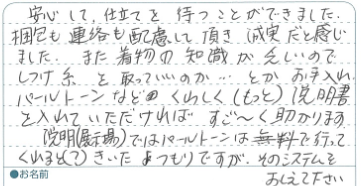 安心して、仕立てを待つことができました。
梱包も連絡も配慮して頂き誠実だと感じ
ました。また着物の知識が乏しいので
しつけ糸を取っていいのか…とかお手入れ
パールトーンなどくわしく(もっと)説明書
を入れていただければすご〜く助かります。
説明(展示場)ではパールトーンは無料で行って
くれると(?)きいたよつもりですが、そのシステムを
おしえて下さい
●お名前